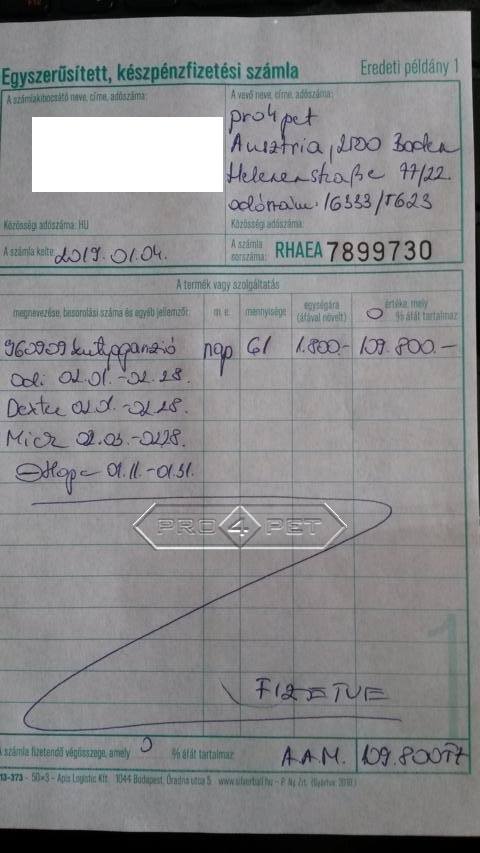 Egyszerűsített, készpénzfizetési számla
Eredeti példány 1
A számlakibocsátó neve, címe, adószáma:
A vevő neve, címe, adószáma:
pro4pet
Ausztria, 2500 Baden
Helenenstraße 77/22.
adószám: 16333/5623
Közösségi adószáma: HU
Közösségi adószáma:
A számla kelte: 2019.01.04.
A számla sorszáma: RHAEA 7899730
A termék vagy szolgáltatás
megnevezése, besorolási száma és egyéb jellemzői:
m. e.
mennyisége
egységára (áfával növelt)
értéke, mely 0 % áfát tartalmaz
960909 kutyapanzió nap 61 1.800.- 109.800.-
Odi 02.01.-02.28.
Dexter 02.01.-02.28.
02.03.-02.28.
01.11.-01.31.
PRO 4 PET
FIZETVE
A számla fizetendő végösszege, amely 0 % áfát tartalmaz
A.A.M. 109.800 FT
13-373 - 50×3 - Apis Logistic Kft. 1044 Budapest, Óradna utca 5. www.silverball.hu – P. Ny. Zrt. (Gyártva: 2018.)
1